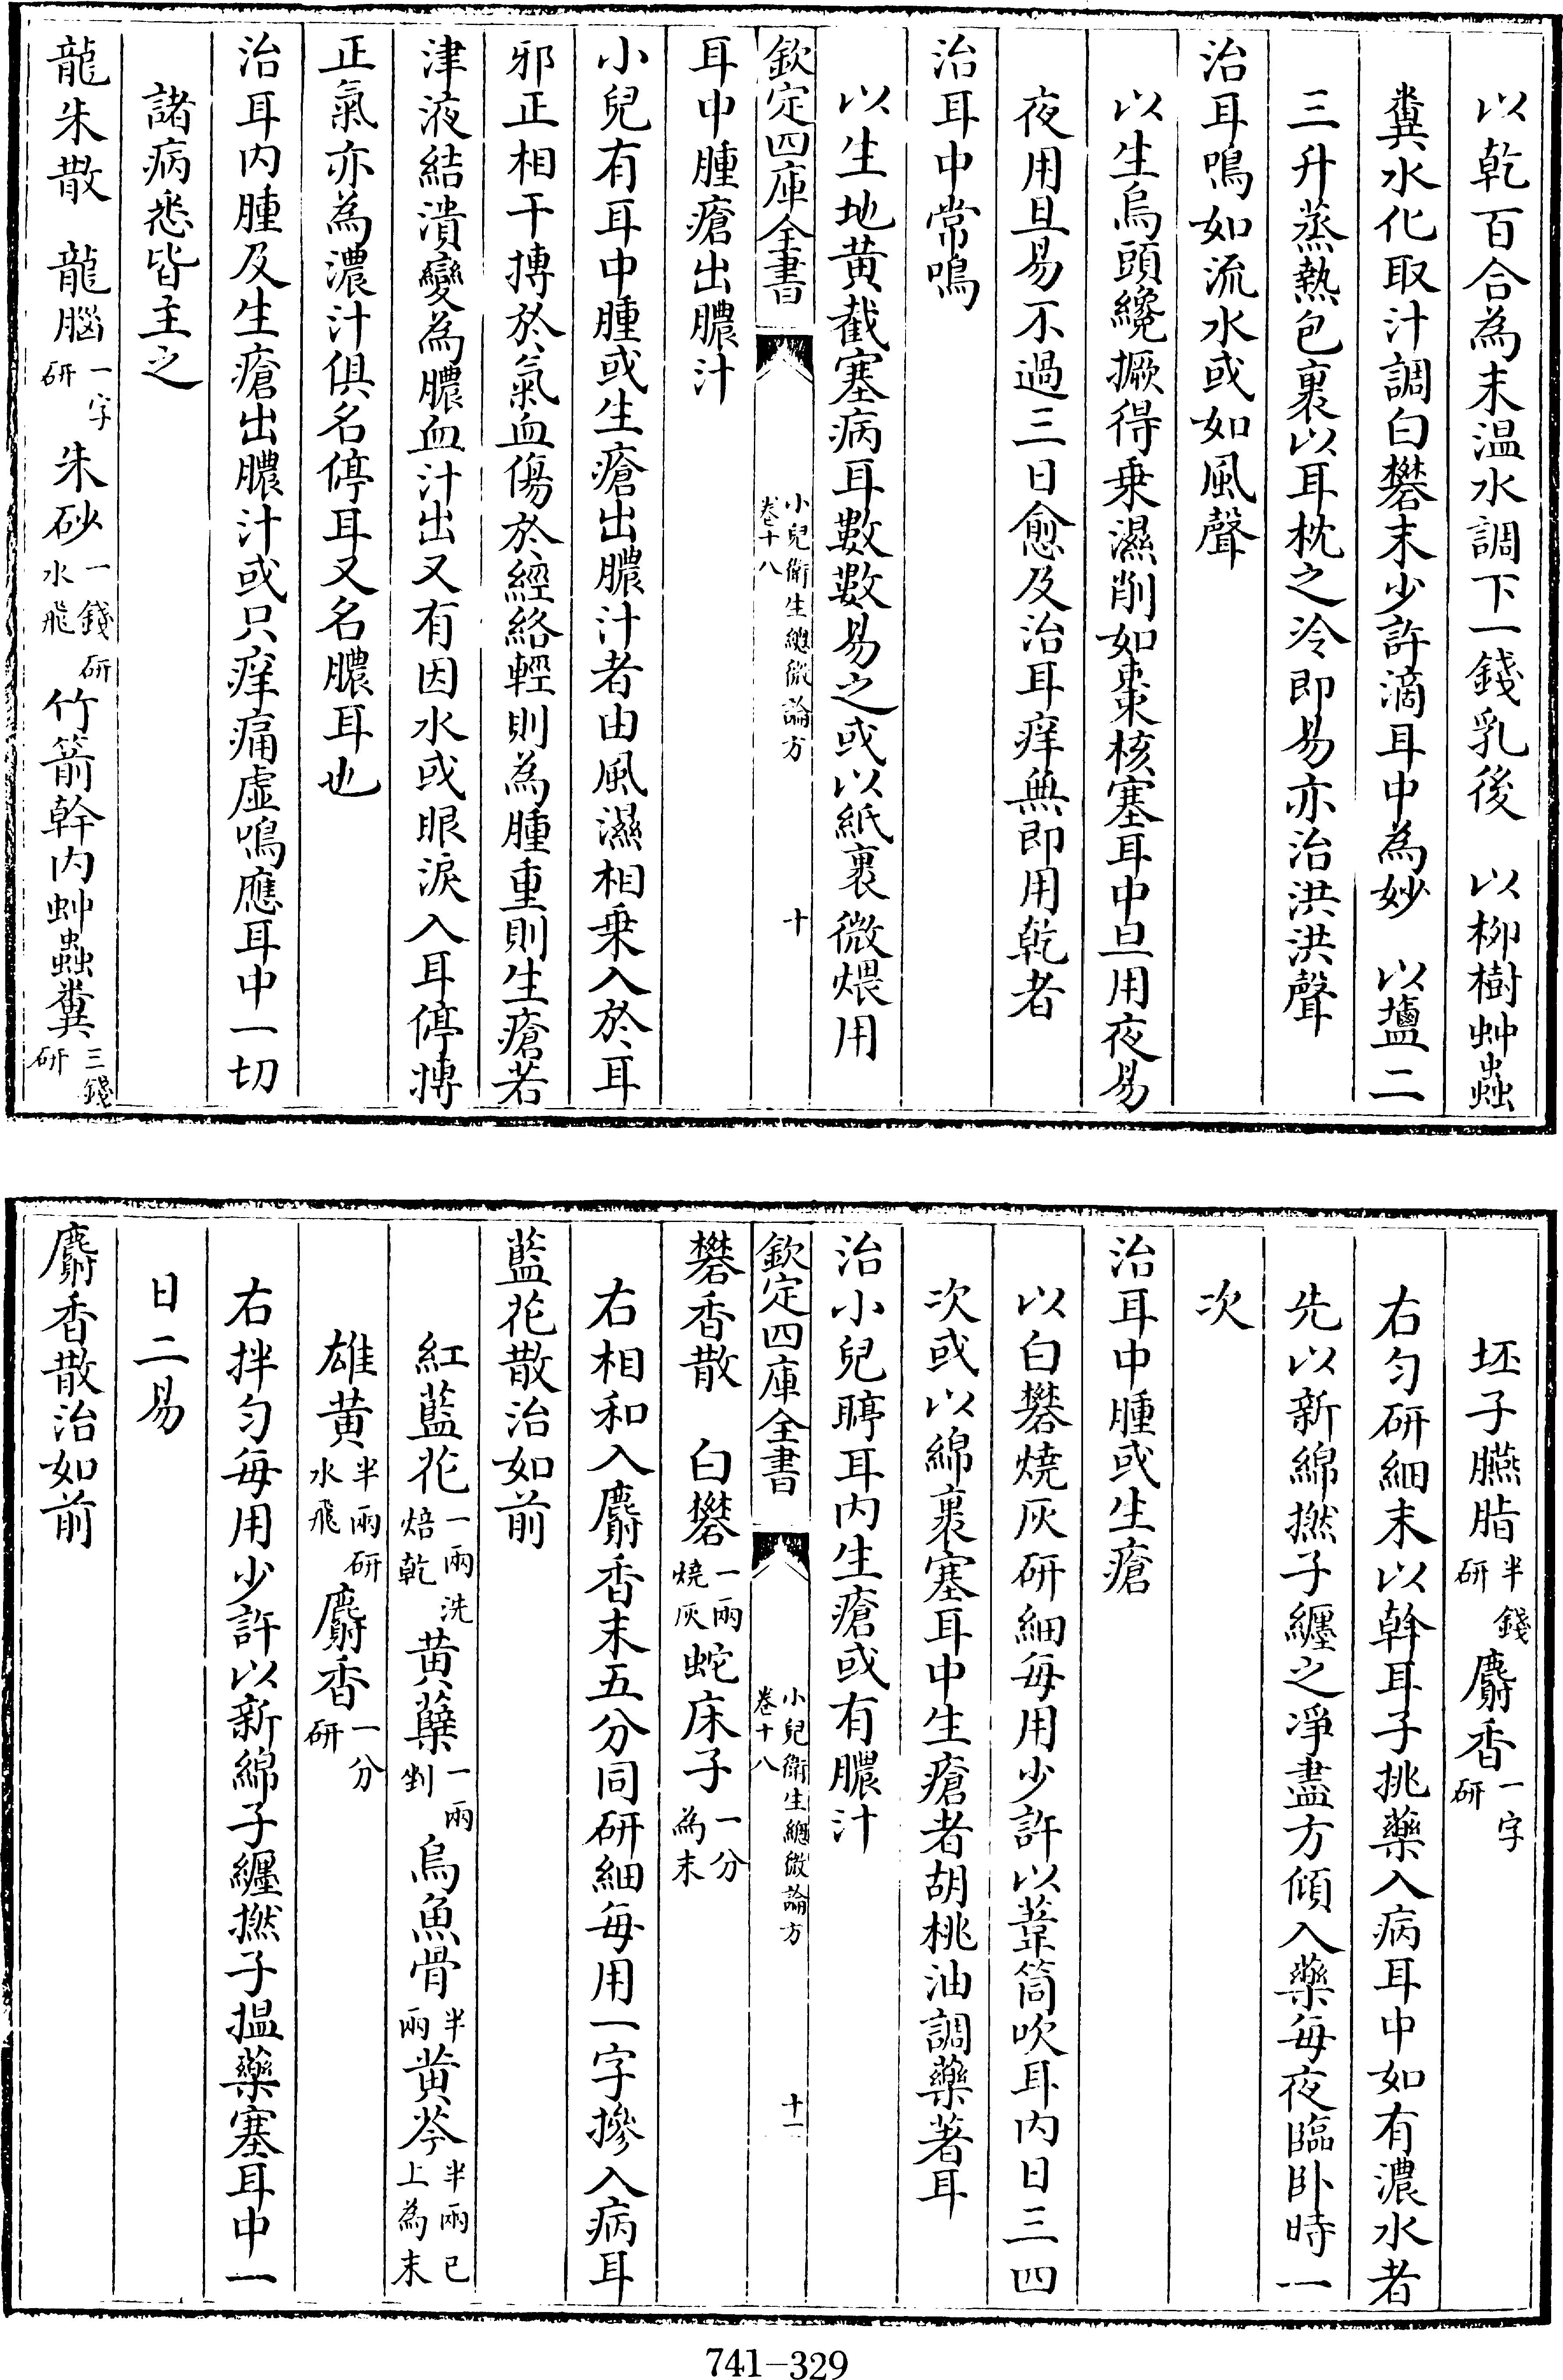 以乾百合為末温水調下一錢乳後　以柳樹蚛蟲
糞水化取汁調白礬末少許滴耳中為妙　以鹽二
三升蒸熱包裹以耳枕之冷即易亦治洪洪聲
治耳鳴如流水或如風聲
以生烏頭纔撅得乗濕削如棗核塞耳中旦用夜易
夜用旦易不過三日愈及治耳痒無即用乾者
治耳中常鳴
以生地黄截塞病耳數數易之或以紙裹微煨用
欽定四庫全書　小兒衛生總微論方卷十八　十
耳中腫瘡出膿汁
小兒有耳中腫或生瘡出膿汁者由風濕相乗入於耳
邪正相干搏於氣血傷於經絡輕則為腫重則生瘡若
津液結潰變為膿血汁出又有因水或眼淚入耳停搏
正氣亦為濃汁俱名停耳又名膿耳也
治耳内腫及生瘡出膿汁或只痒痛虚鳴應耳中一切
諸病悉皆主之
龍朱散　龍腦一字研　朱砂一錢研水飛　竹箭幹内蚛蟲糞三錢研
坯子臙脂半錢研　麝香一字研
右匀研細末以斡耳子挑藥入病耳中如有濃水者
先以新綿撚子纏之淨盡方傾入藥每夜臨卧時一
次
治耳中腫或生瘡
以白礬燒灰研細每用少許以葦筒吹耳内日三四
次或以綿裹塞耳中生瘡者胡桃油調藥著耳
治小兒聤耳内生瘡或有膿汁
欽定四庫全書　小兒衛生總微論方卷十八　十一
礬香散　白礬一兩燒灰　蛇床子一分為末
右相和入麝香末五分同研細每用一字摻入病耳
藍花散治如前
紅藍花一兩洗焙乾　黄蘗一兩剉　烏魚骨半兩　黄芩半兩已上為末
雄黄半兩研水飛　麝香一分研
右拌匀每用少許以新綿子纏撚子揾藥塞耳中一
日二易
麝香散治如前
741-329